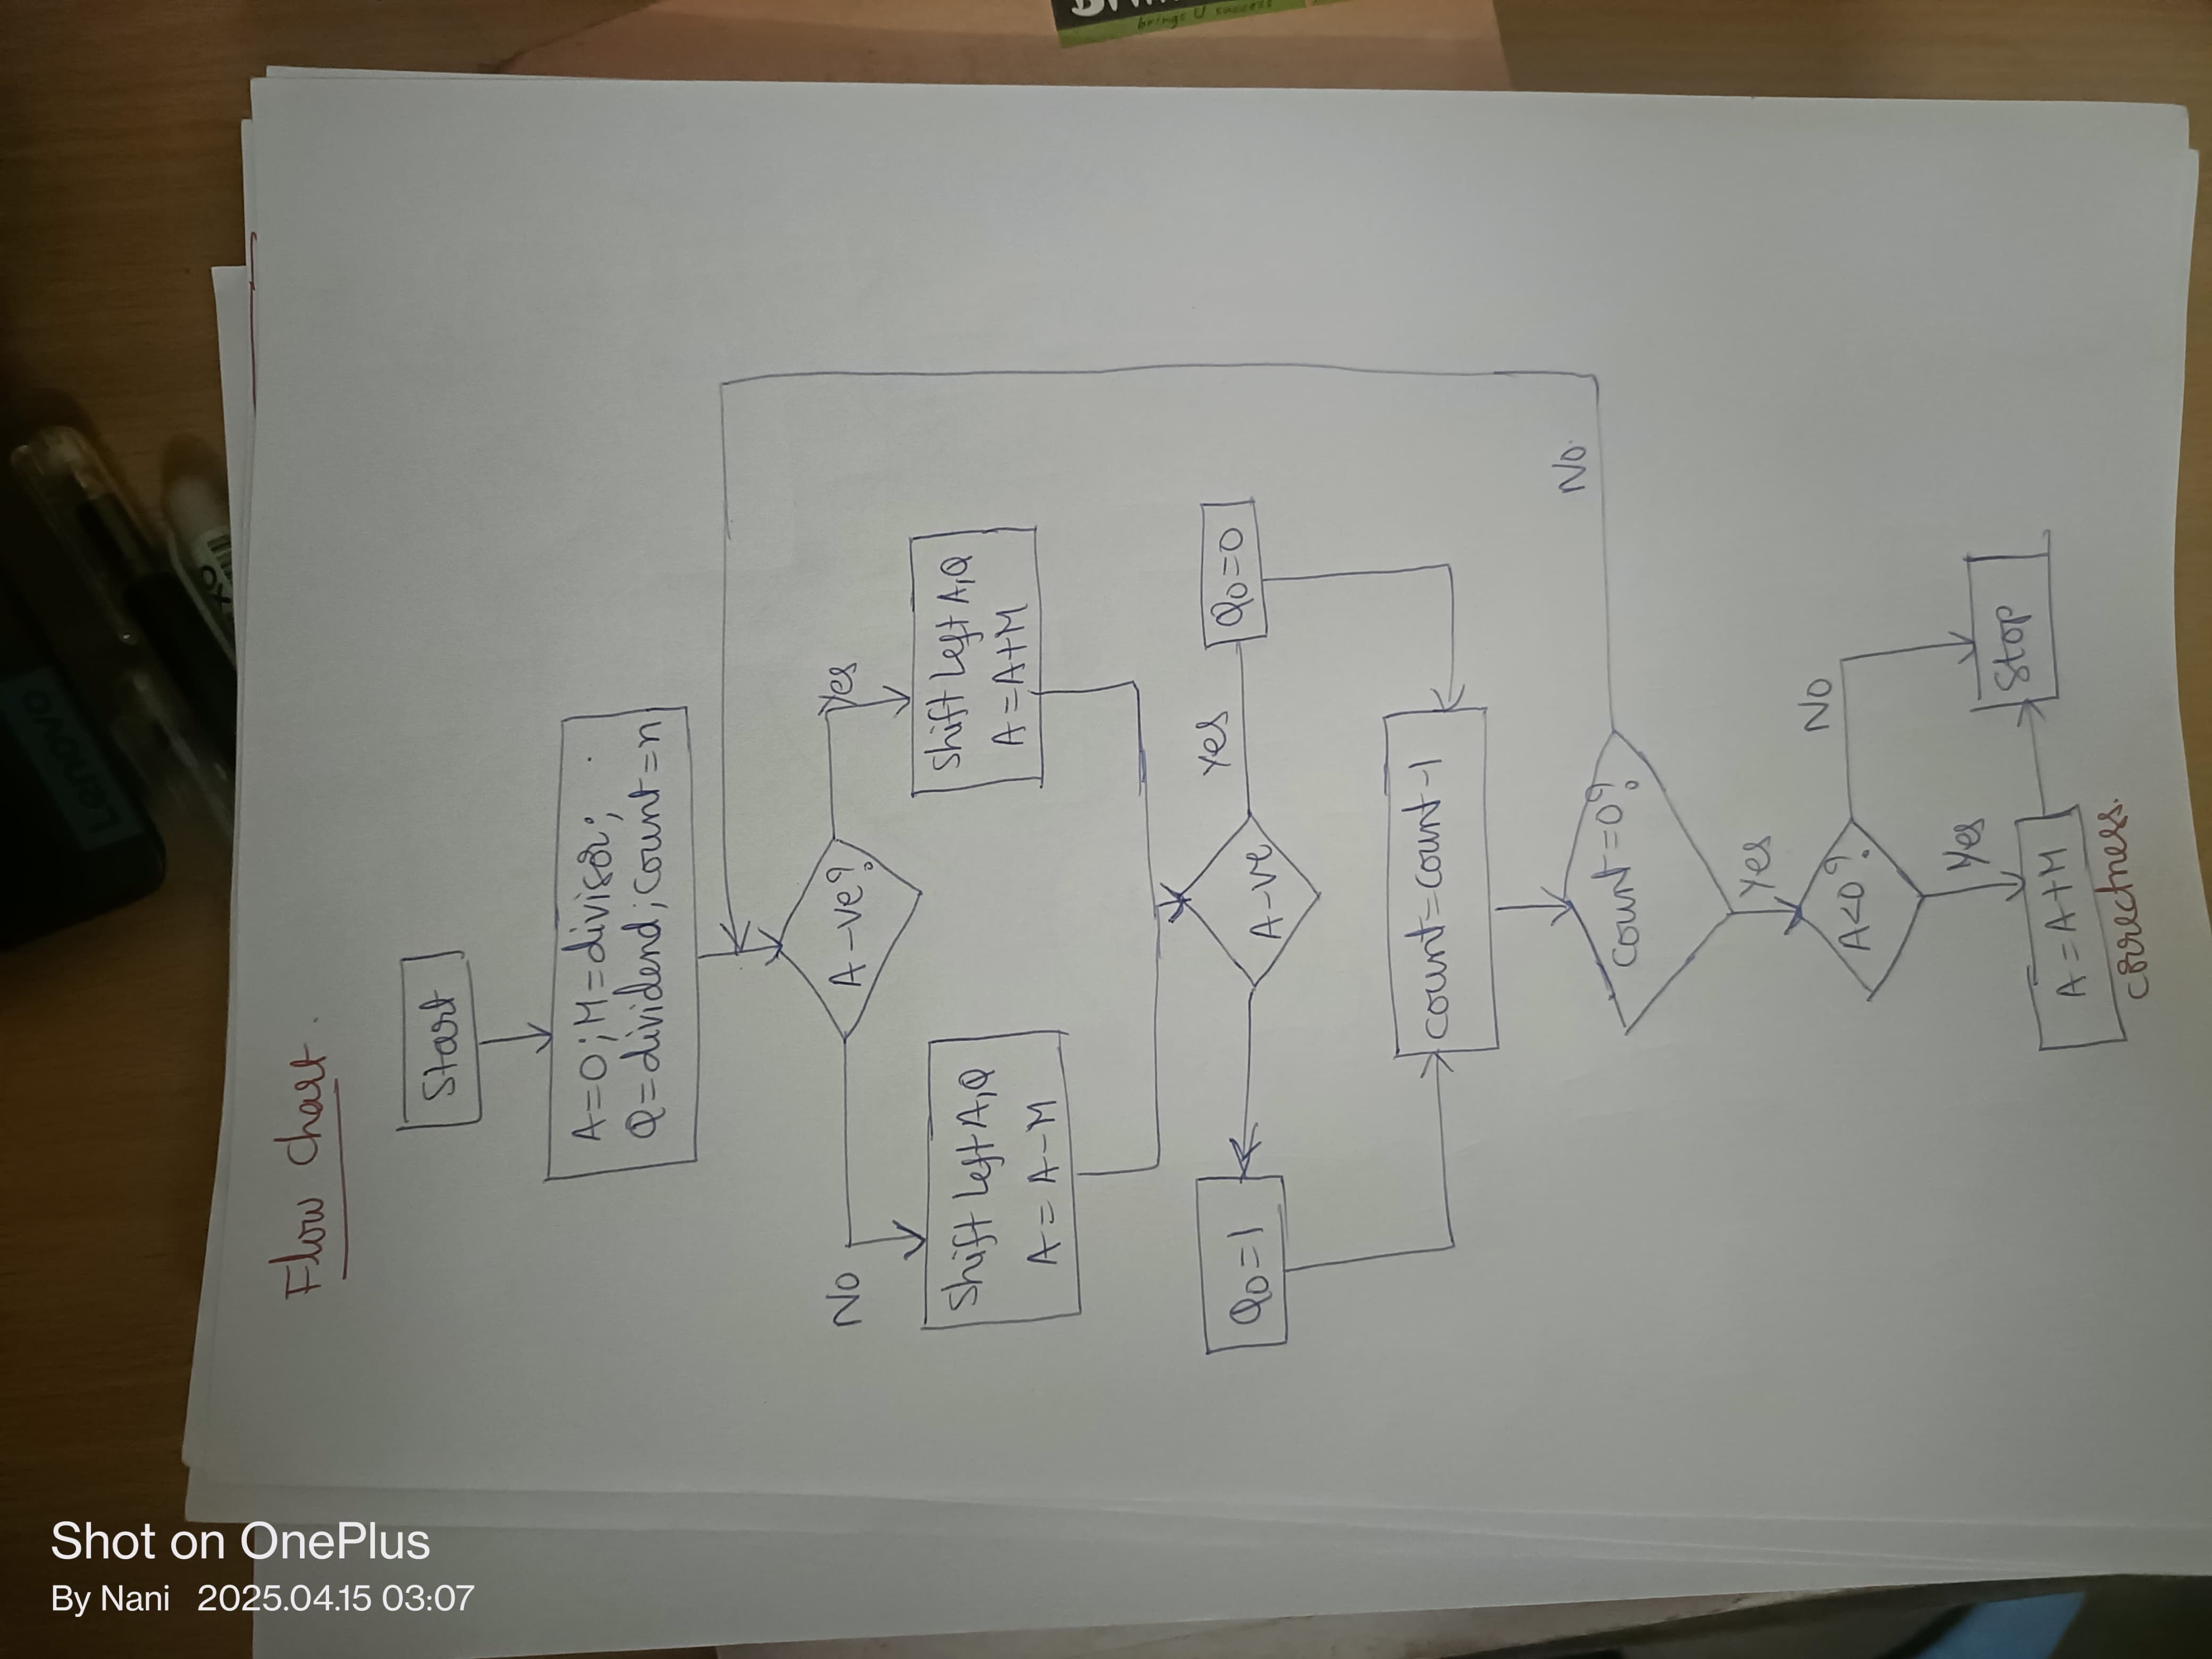 Shot on OnePlus
By Nani 2025.04.15 03:07
Lenovo
Flow Chart.
Start
A=0; M=divisor;
Q=dividend; count=n
A -ve?
No
Yes
Shift Left A,Q
A = A-M
Shift Left A,Q
A=A+M
A-ve
Yes
Q0=1
Q0=0
count=count-1
count=0?
No.
Yes
A<0?
No
Yes
A=A+M
Stop
correctness.